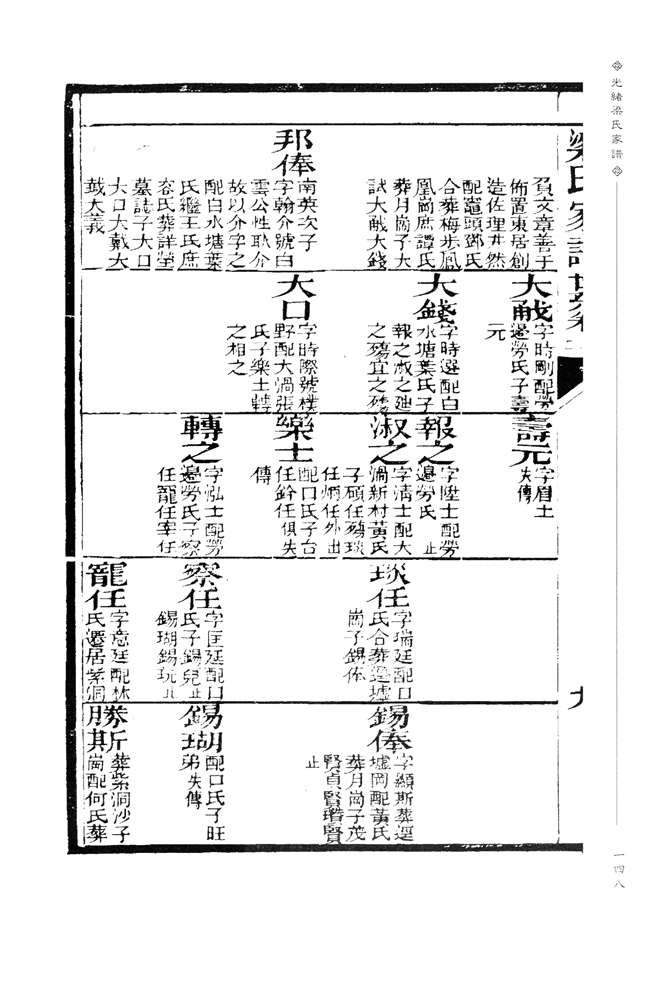 光緒梁氏家譜
一四八
梁氏家譜世系卷
九
負文章善于
佈置東居創
造佐理井然
配竈頭鄧氏
合葬梅步鳳
凰崗庶譚氏
葬月崗子大
試大戙大錢
邦俸
南英次子
字翰介號白
雲公性耿介
故以介字之
配白水塘葉
氏繼王氏庶
容氏葬詳塋
墓誌子大口
大口大戴大
大義
字時剛配勞
邊勞氏子壽
元
大錢
字時選配白
水塘葉氏子
報之淑之
之殤宜之殤
大口
字時際號樸
野配大渦張
氏子樂士轉
之相之
壽元
字眉士
失傳
報之
字陞士配勞
邊勞氏 止
淑之
字清士配大
渦新村黃氏
子碩任殤琰
任炳任外出
樂士
配口氏子台
任鈐任俱失
傳
轉之
字泓士配勞
邊勞氏子察
任寵任宰任
琰任
字瑞廷配口
氏合葬逕墟
崗子錫俸
察任
字匡廷配口
氏子錫兒止
錫瑚錫玩止
寵任
字意廷配林
氏遷居紫洞
錫俸
字顯斯葬逕
墟岡配黃氏
葬月崗子茂
賢貞賢瓚賢
止
錫瑚
配口氏子旺
弟失傳
勝斯
葬紫洞沙子
崗配何氏葬